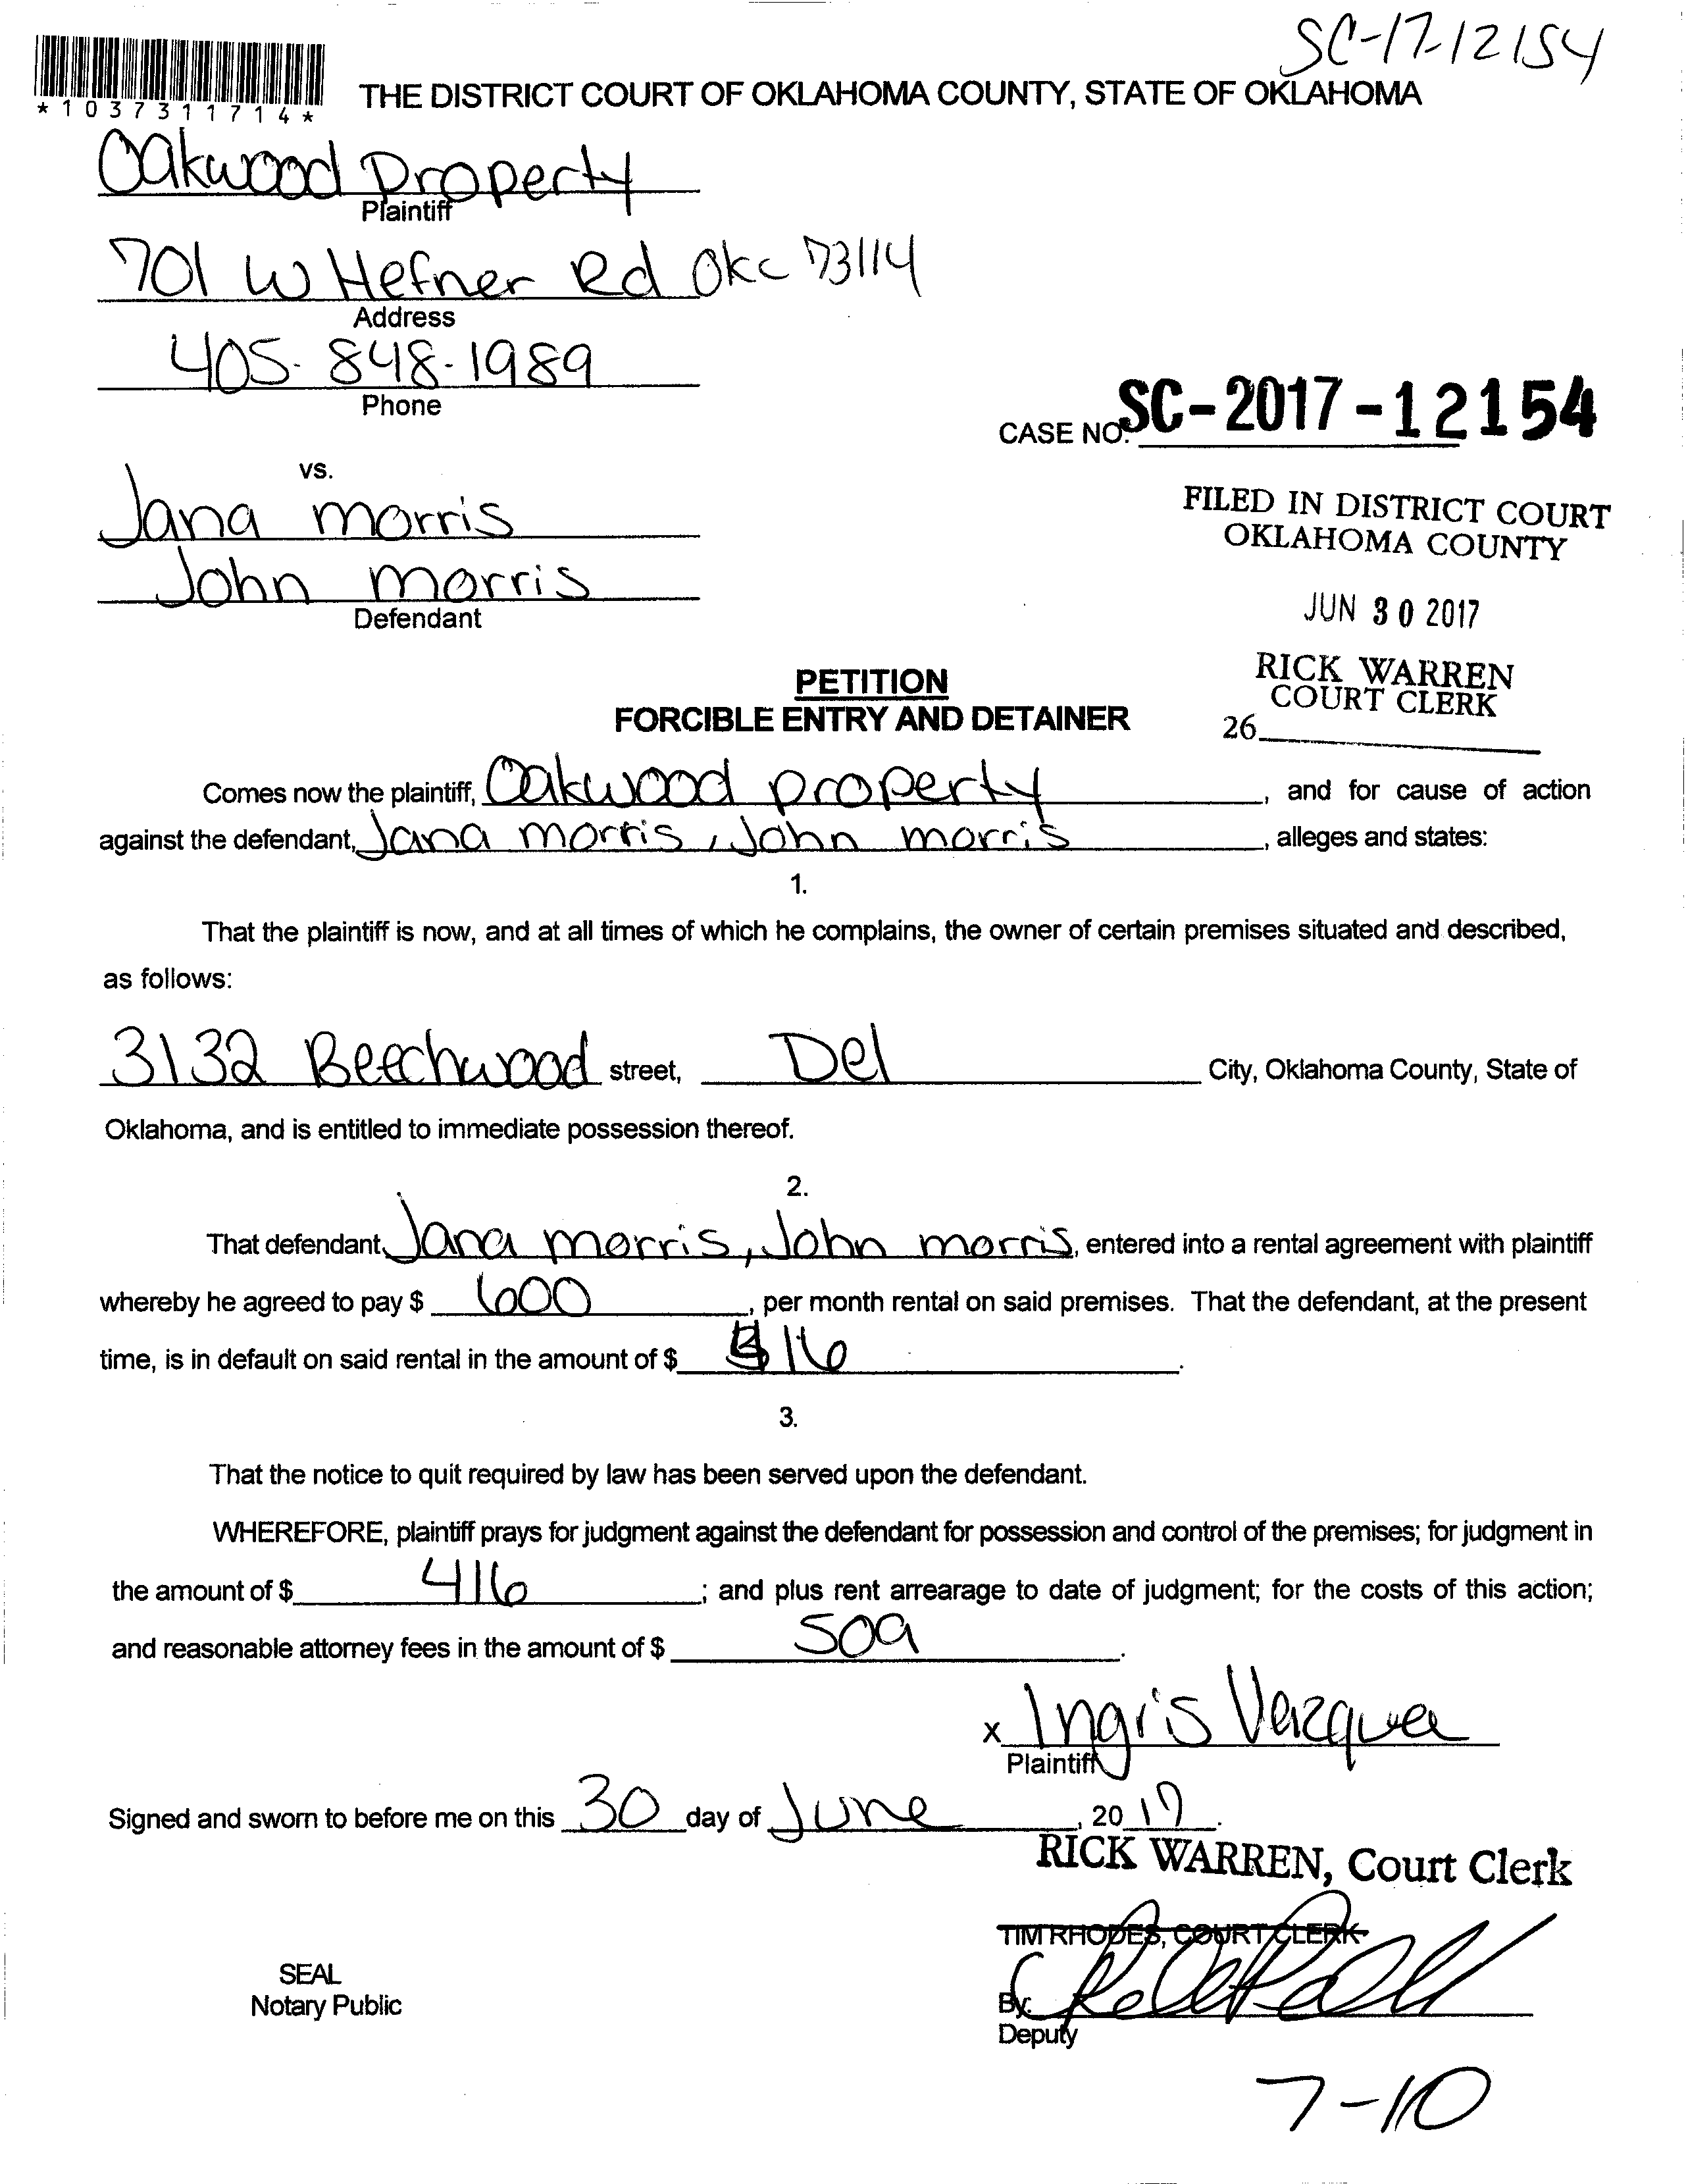 SC-17-12154
*1037311714*
THE DISTRICT COURT OF OKLAHOMA COUNTY, STATE OF OKLAHOMA
Oakwood Property
Plaintiff
701 W Hefner Rd Okc 73114
Address
405-848-1989
Phone
CASE NO. SC-2017-12154
vs.
Jana morris
John morris
Defendant
FILED IN DISTRICT COURT
OKLAHOMA COUNTY
JUN 30 2017
RICK WARREN
COURT CLERK
26
PETITION
FORCIBLE ENTRY AND DETAINER
Comes now the plaintiff, Oakwood property, and for cause of action
against the defendant, Jana morris, John morris, alleges and states:
1.
That the plaintiff is now, and at all times of which he complains, the owner of certain premises situated and described,
as follows:
3132 Beechwood street, Del City, Oklahoma County, State of
Oklahoma, and is entitled to immediate possession thereof.
2.
That defendant, Jana morris, John morris, entered into a rental agreement with plaintiff
whereby he agreed to pay $ 600, per month rental on said premises. That the defendant, at the present
time, is in default on said rental in the amount of $ 16.
3.
That the notice to quit required by law has been served upon the defendant.
WHEREFORE, plaintiff prays for judgment against the defendant for possession and control of the premises; for judgment in
the amount of $ 416; and plus rent arrearage to date of judgment; for the costs of this action;
and reasonable attorney fees in the amount of $.
x Ingris
Plaintiff
Signed and sworn to before me on this 30 day of June, 2017.
RICK WARREN, Court Clerk
TIM RHODES, COURT CLERK
SEAL
Notary Public
By:
Deputy
7-10